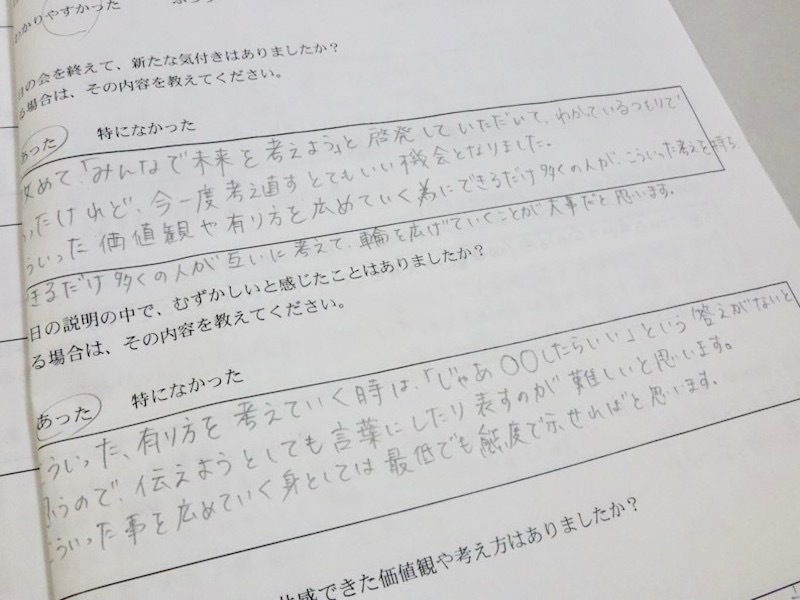 わかりやすかった
日の会を終えて、新たな気付きはありましたか?
る場合は、その内容を教えてください。
あった 特になかった
改めて、「みんなで未来を考えよう」と啓発していただいて、わかっているつもりで
ったけれど、今一度考え直すとてもいい機会となりました。
ういった価値観や有り方を広めていく為にできるだけ多くの人が、こういった考えを持ち、
きるだけ多くの人が互いに考えて、輪を広げていくことが大事だと思います。
日の説明の中で、むずかしいと感じたことはありましたか?
る場合は、その内容を教えてください。
あった 特になかった
ういった、有り方を考えていく時は、「じゃあ〇〇したらいい」という答えがないと
うので、伝えようとしても言葉にしたり表すのが難しいと思います。
ういった事を広めていく身としては最低でも態度で示せればと思います。
共感できた価値観や考え方はありましたか?